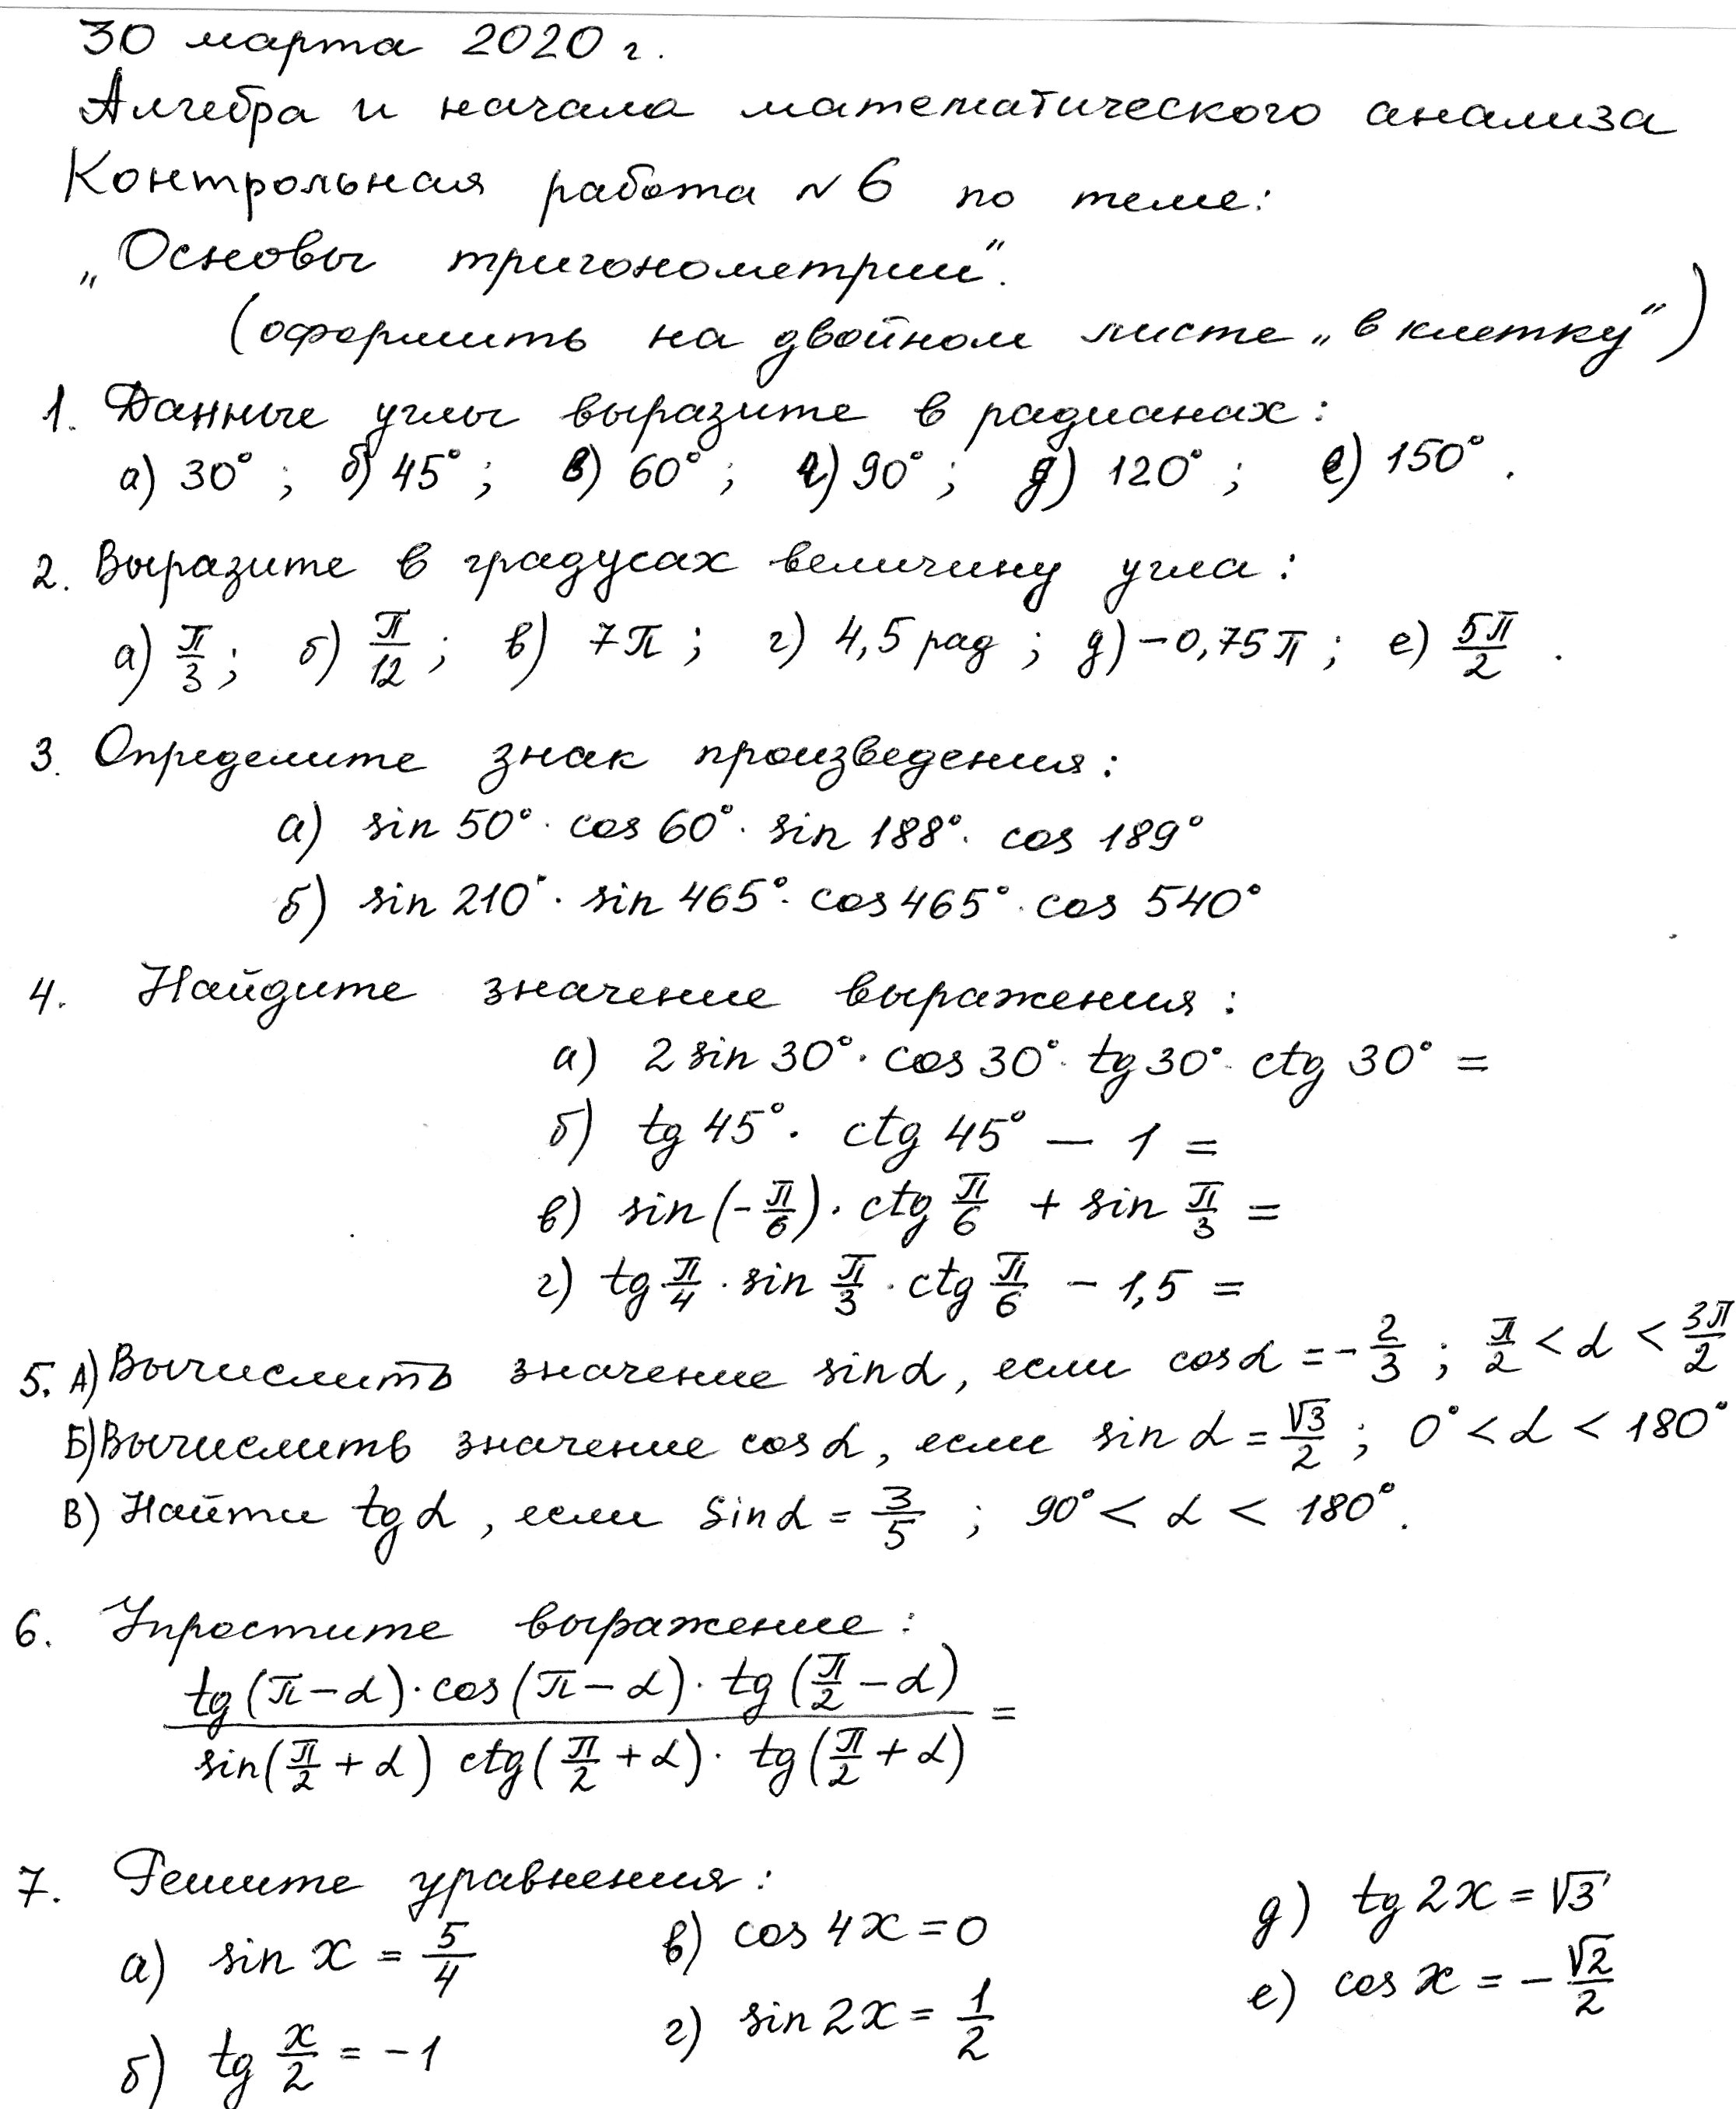 30 марта 2020 г.
Алгебра и начала математического анализа
Контрольная работа №6 по теме:
„Основы тригонометрии".
(оформить на двойном листе „в клетку")
1. Данные углы выразите в радианах:
а) 30°; б) 45°; в) 60°; г) 90°; д) 120°; е) 150°.
2. Выразите в градусах величину угла:
а) π/3; б) π/12; в) 7π; г) 4,5 рад; д) -0,75π; е) 5π/2.
3. Определите знак произведения:
а) sin 50° · cos 60° · sin 188° · cos 189°
б) sin 210° · sin 465° · cos 465° · cos 540°
4. Найдите значение выражения:
а) 2 sin 30° · cos 30° · tg 30° · ctg 30° =
б) tg 45° · ctg 45° – 1 =
в) sin(-π/6) · ctg π/6 + sin π/3 =
г) tg π/4 · sin π/3 · ctg π/6 – 1,5 =
5. А) Вычислить значение sin α, если cos α = -2/3; π/2 < α < 3π/2
Б) Вычислить значение cos α, если sin α = √3/2; 0° < α < 180°
В) Найти tg α, если sin α = 3/5; 90° < α < 180°.
6. Упростите выражение:
tg(π – α) · cos(π – α) · tg(π/2 – α)
=
sin(π/2 + α) ctg(π/2 + α) · tg(π/2 + α)
7. Решите уравнения:
а) sin x = 5/4
б) tg x/2 = -1
в) cos 4x = 0
г) sin 2x = 1/2
д) tg 2x = √3
е) cos x = -√2/2